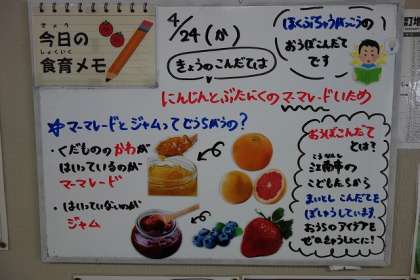 きょう
今日の
しょくいく
食育メモ
4/24(か)
きょうのこんだては
ほくぶちゅうがっこうの
おうぼこんだて
です
にんじんとぶたにくのマーマレードいため
☆マーマレードとジャムってどうちがうの?
・くだもののかわが
はいっているのが
マーマレード
・はいっていないのが
ジャム
おうぼこんだて
とは?
こうなんし
江南市の
こどもたちから
まいとしこんだてを
ぼしゅうしています。
おうちのアイデアを
ぜひきゅうしょくに!